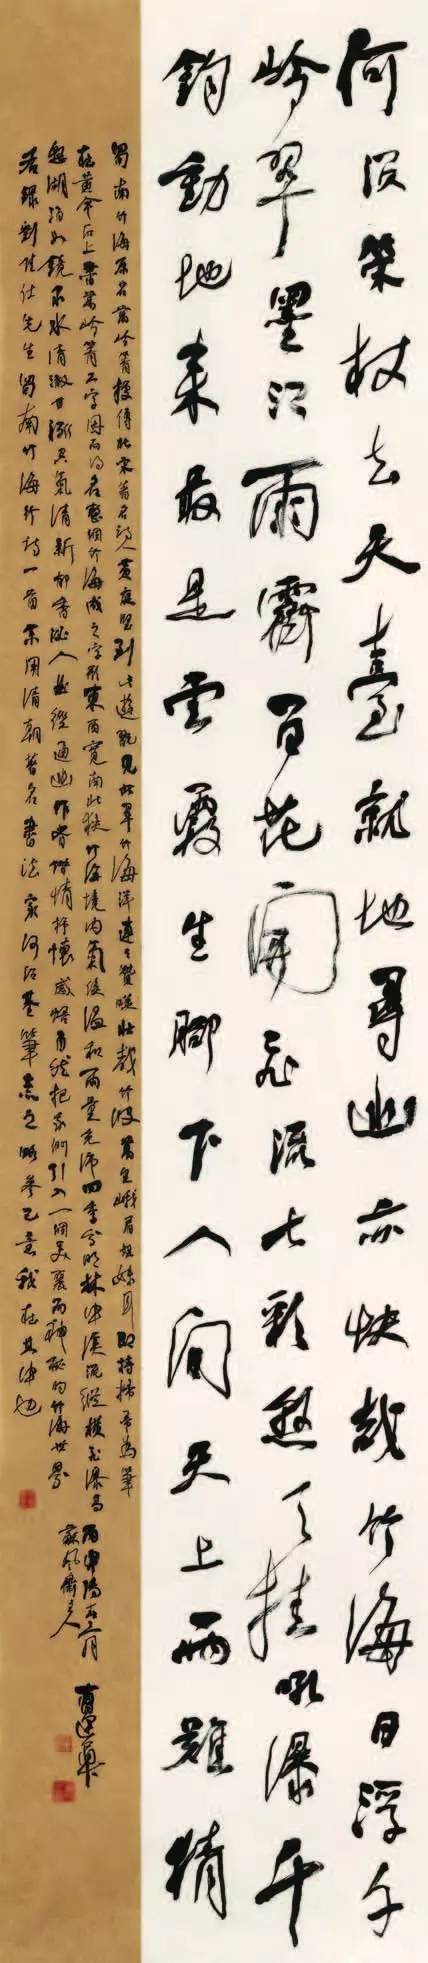 何须策杖去天台就地寻幽亦快哉竹海日浮千
岭翠墨江雨霁百花开飞流七彩悬天挂吼瀑千
钧动地来最是云霞生脚下人间天上两难猜
蜀南竹海原名万岭箐据传北宋著名诗人黄庭坚到此游玩见此翠竹海洋连连赞叹壮哉竹波万里峨眉姐妹耳即持扫帚为笔
在黄伞石上书万岭箐三字因而得名整个竹海成之字形东西宽南北狭竹海境内气候温和雨量充沛四季分明林中溪流纵横飞瀑高
悬湖泊如镜泉水清澈甘冽空气清新郁香沁人曲径通幽作者借情抒怀感悟自然把我们引入一个美丽而神秘的竹海世界
右录刘 仕先生蜀南竹海行诗一首 用清朝著名书法家何绍基笔意之 参己意我在其中也
丙申 月